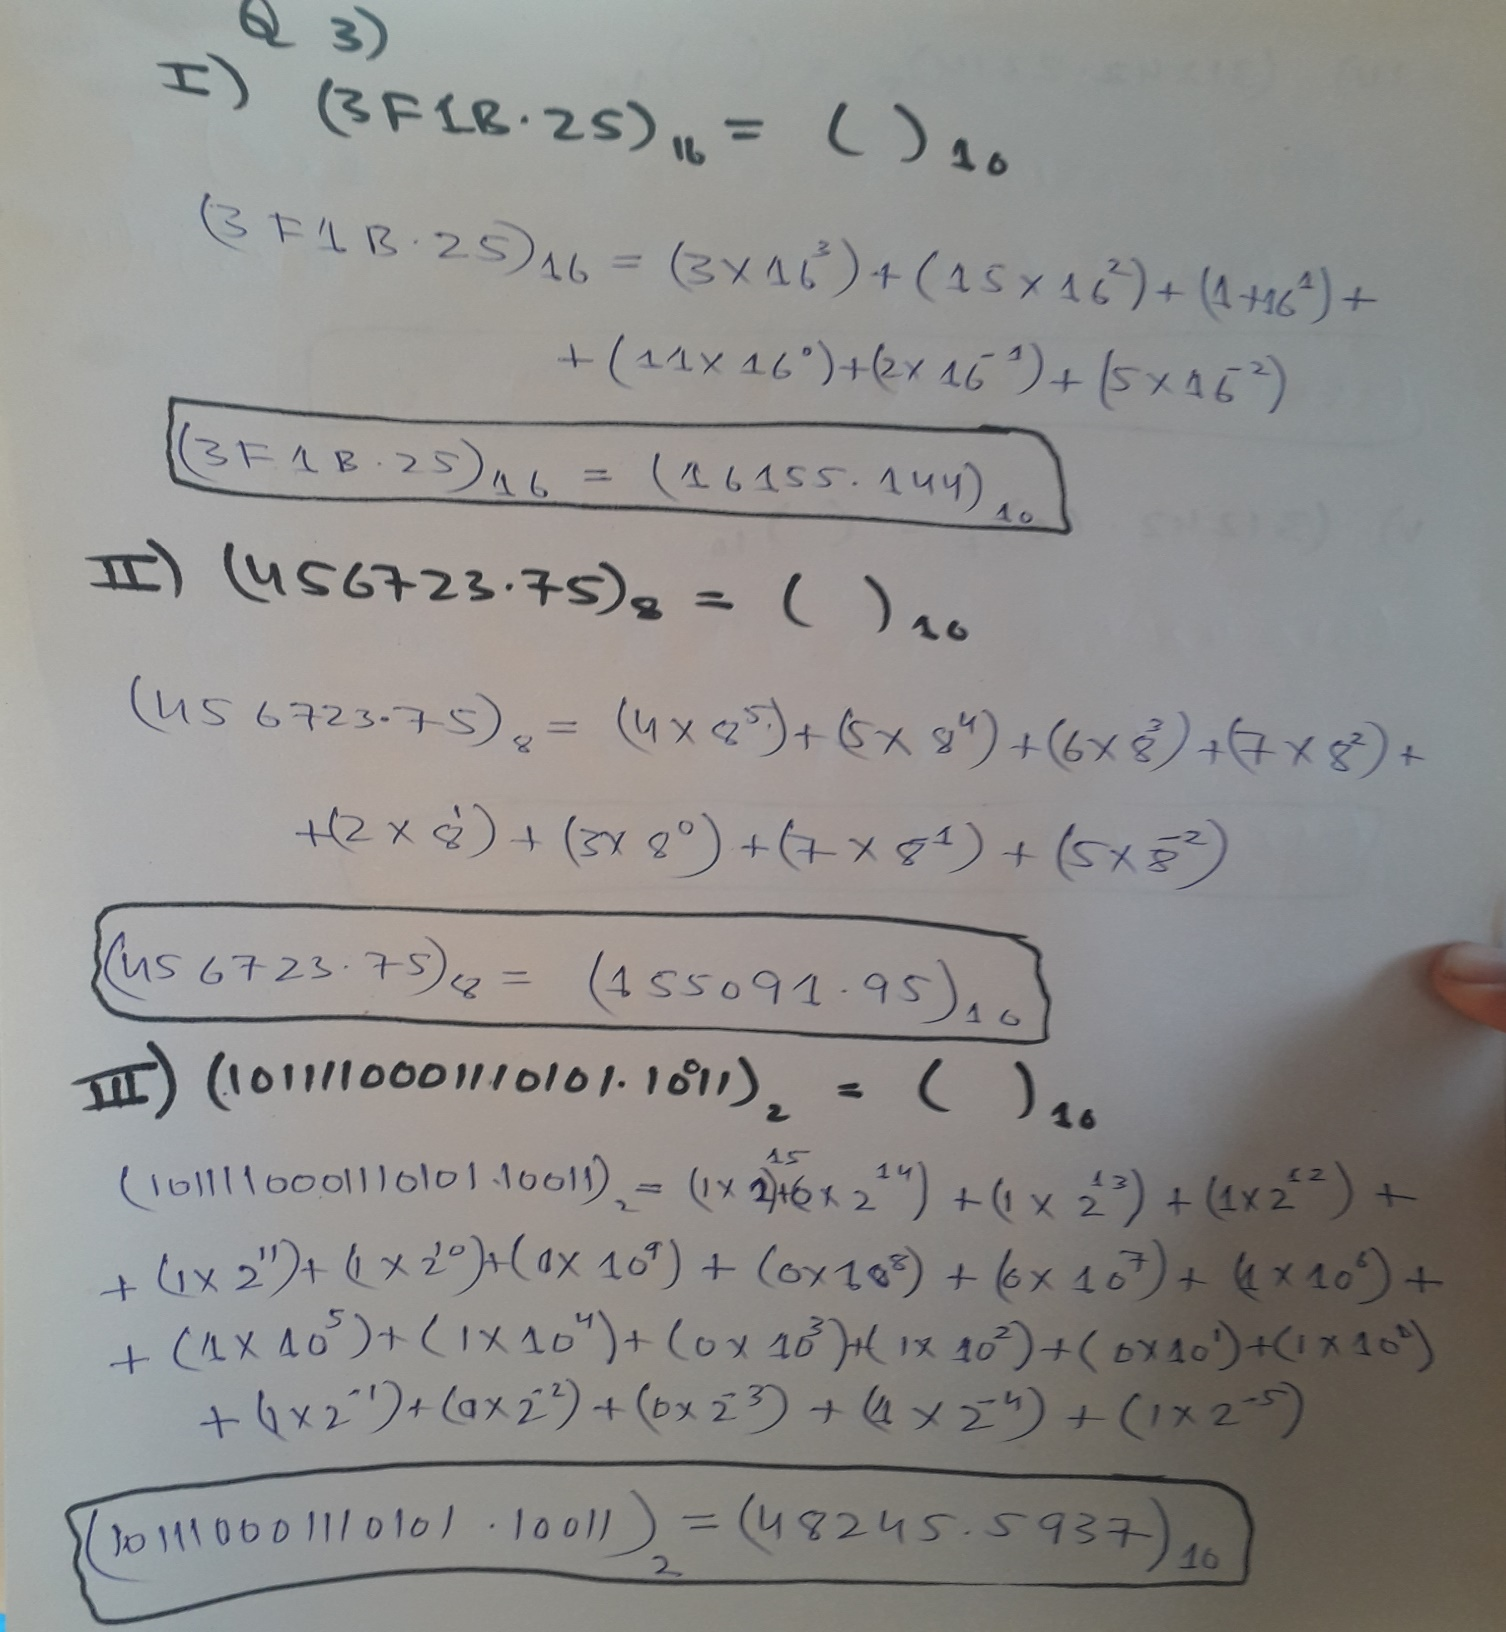 Q 3)
I) (3F1B.25)₁₆ = ( )₁₀
(3F1B.25)₁₆ = (3×16³)+(15×16²)+(1+16¹)+
+(11×16⁰)+(2×16⁻¹)+(5×16⁻²)
(3F1B.25)₁₆ = (16155.144)₁₀
II) (456723.75)₈ = ( )₁₀
(456723.75)₈ = (4×8⁵)+(5×8⁴)+(6×8³)+(7×8²)+
+(2×8¹)+(3×8⁰)+(7×8¹)+(5×8⁻²)
(456723.75)₈ = (155091.95)₁₀
III) (1011110001110101.10011)₂ = ( )₁₀
(1011110001110101.10011)₂ = (1×2¹⁵)+(0×2¹⁴)+(1×2¹³)+(1×2¹²)+
+(1×2¹¹)+(1×2¹⁰)+(0×10⁹)+(0×10⁸)+(0×10⁷)+(1×10⁶)+
+(1×10⁵)+(1×10⁴)+(0×10³)+(1×10²)+(0×10¹)+(1×10⁰)
+(1×2⁻¹)+(0×2⁻²)+(0×2⁻³)+(1×2⁻⁴)+(1×2⁻⁵)
(1011110001110101.10011)₂ = (48245.5937)₁₀